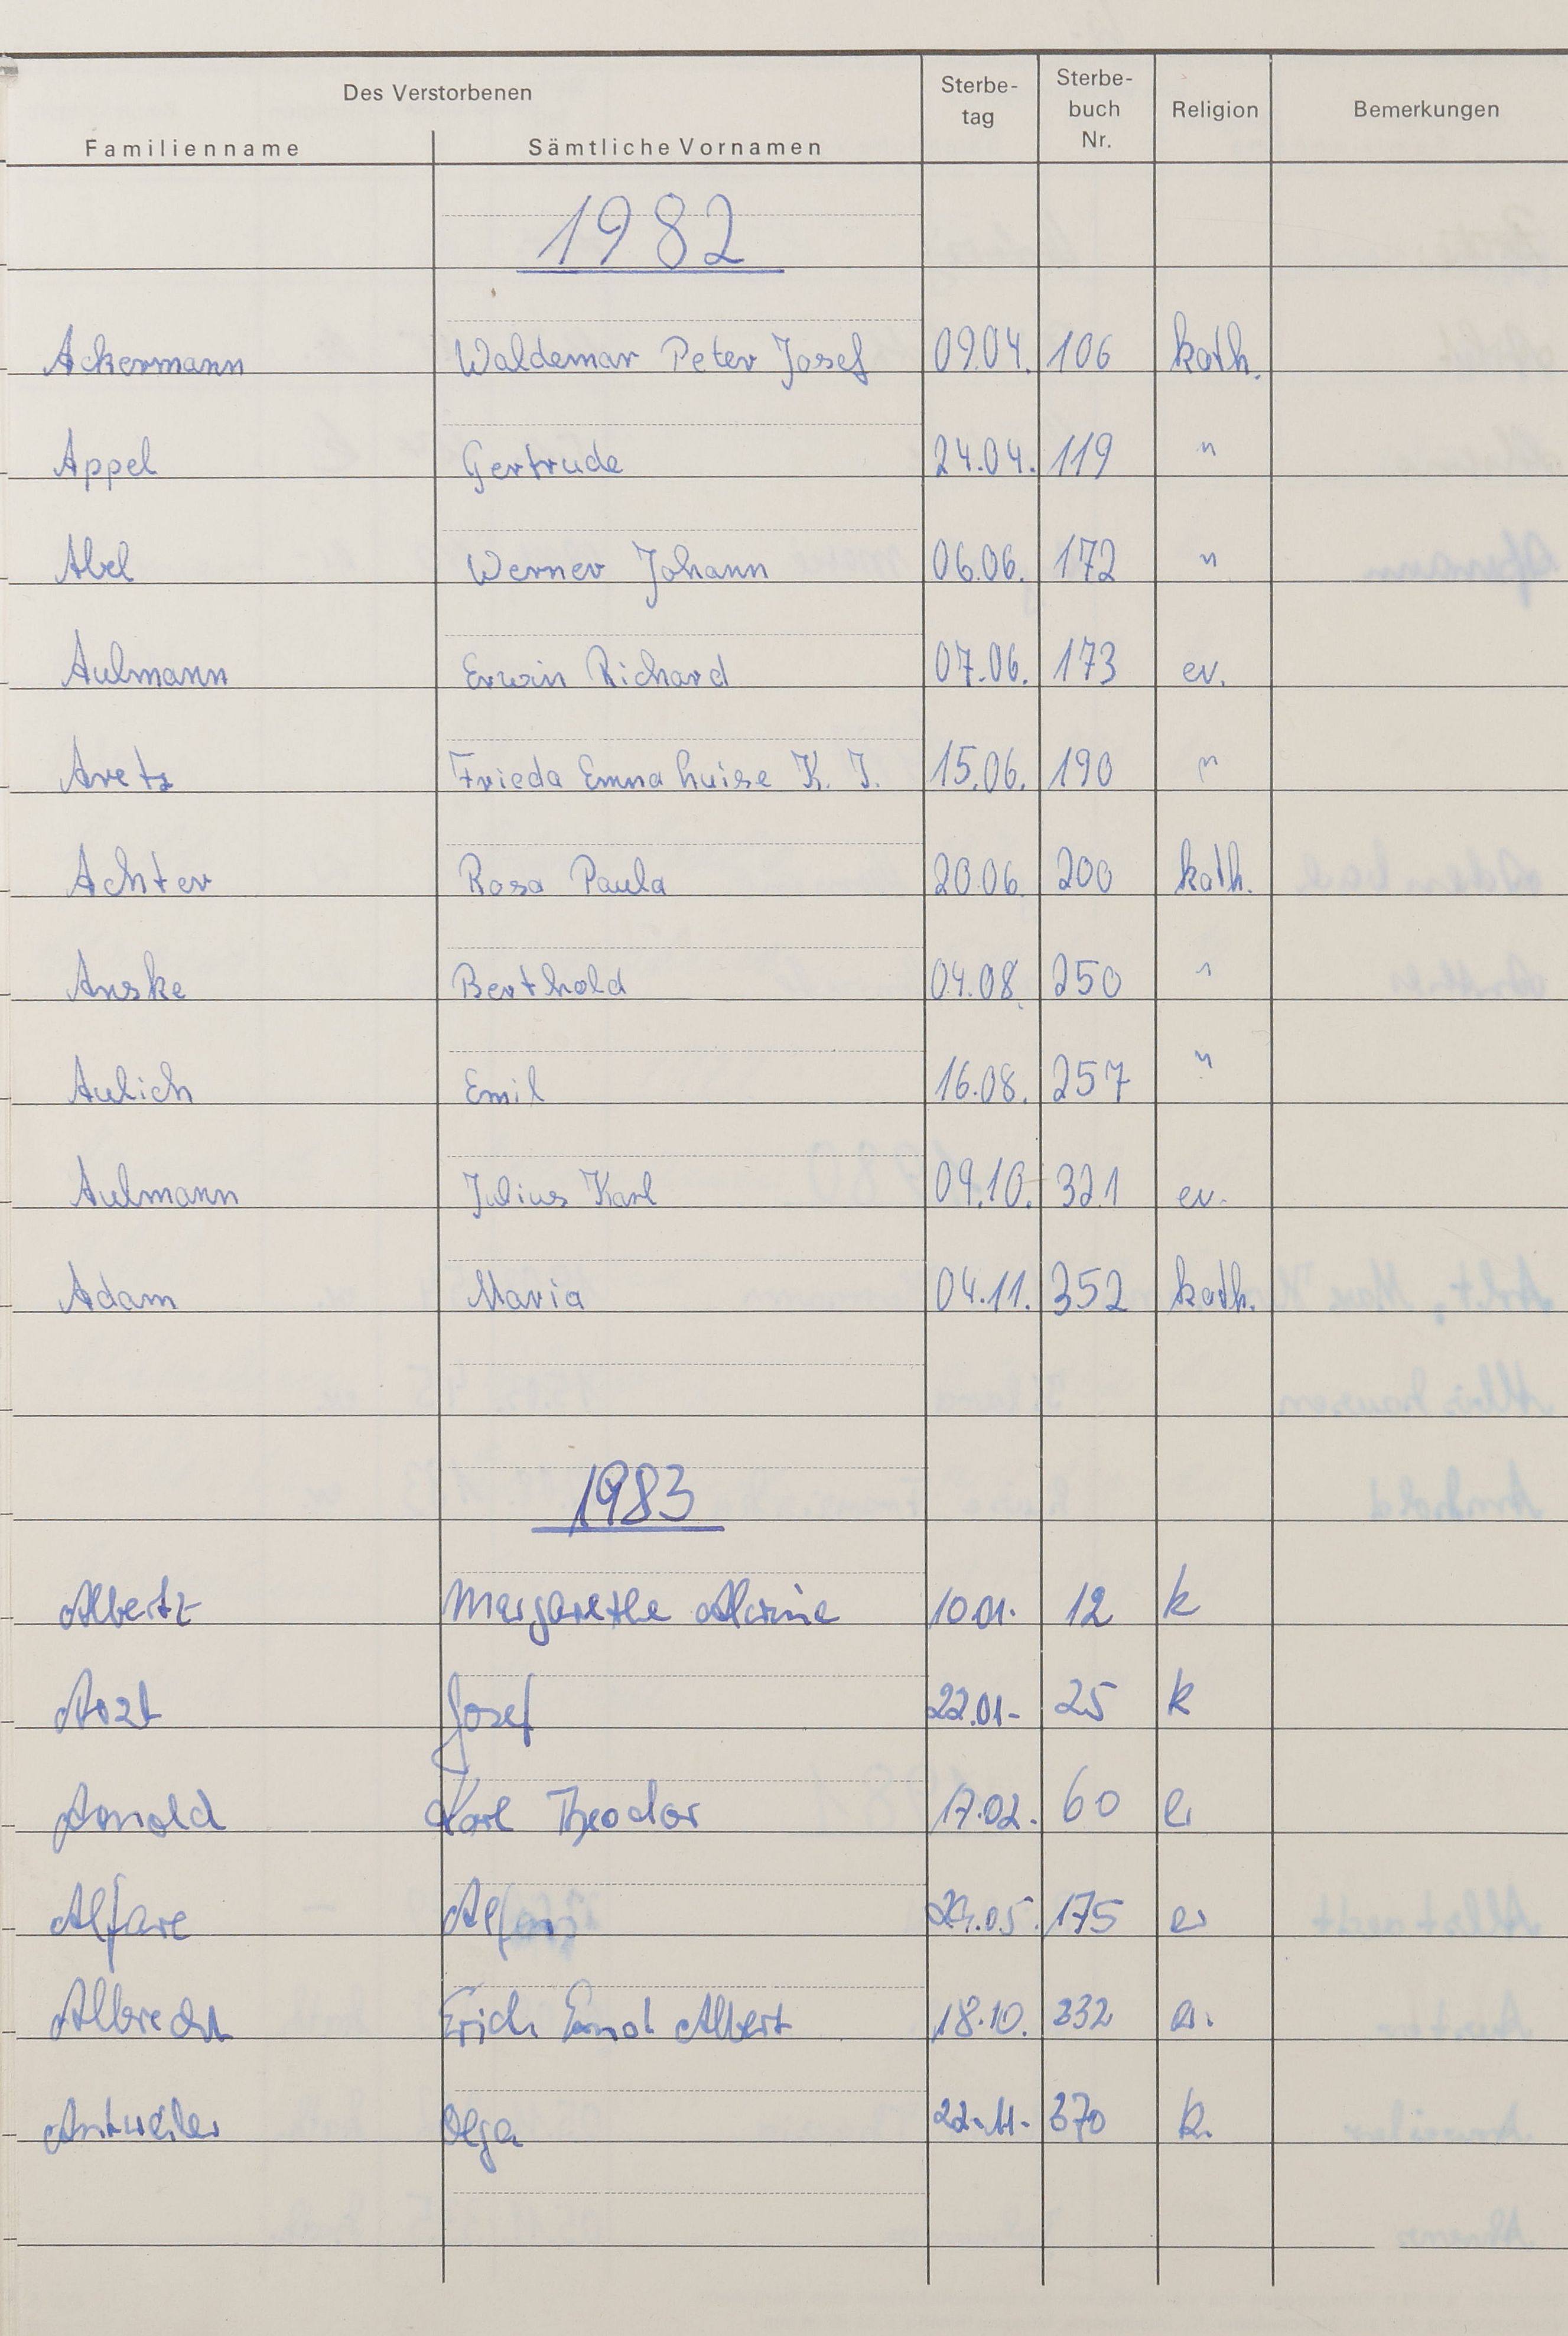 Des Verstorbenen
Familienname Sämtliche Vornamen Sterbe-tag Sterbe-buch Nr. Religion Bemerkungen
1982
Ackermann Waldemar Peter Josef 09.04. 106 kath.
Appel Gertrude 24.04. 119 "
Abel Werner Johann 06.06. 172 "
Aulmann Erwin Richard 07.06. 173 ev.
Aretz Frieda Emma Luise K. J. 15.06. 190 "
Achter Rosa Paula 20.06. 200 kath.
Anske Berthold 04.08. 250 "
Aulich Emil 16.08. 257 "
Aulmann Julius Karl 09.10. 321 ev.
Adam Maria 04.11. 352 kath.
1983
Albertz Margarethe 10.01. 12 k
Arzt Josef 22.01. 25 k
Arnold Karl Theodor 17.02. 60 ev
Alfare 175 ev
Albrecht Erich Ernst Albert 18.10. 332 ev.
Antweiler Olga 22.11. 370 k.